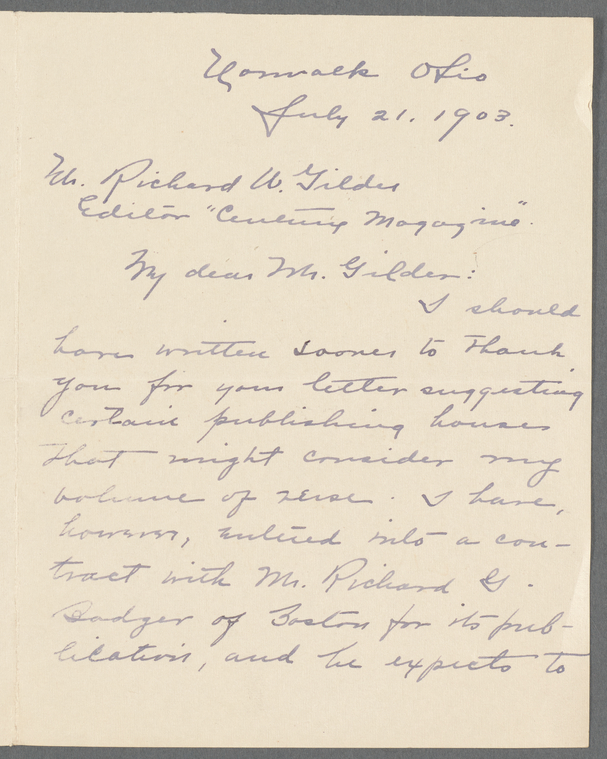 Norwalk Ohio
July 21, 1903.
Mr. Richard W. Gilder
Editor "Century Magazine".
My dear Mr. Gilder:
I should
have written sooner to thank
you for your letter suggesting
certain publishing houses
that might consider my
volume of verse. I have,
however, entered into a con-
tract with Mr. Richard G.
Badger of Boston for its pub-
lication, and he expects to